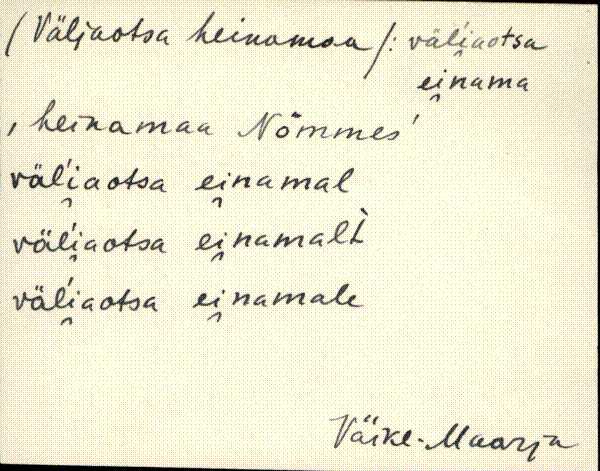 /Väljaotsa heinamaa/: väl'i̯aotsa
ei̯nama
, heinamaa Nõmmes'
väl'i̯aotsa ei̯namal
väl'i̯aotsa ei̯namalt̀
väl'i̯aotsa ei̯namale
Väike-Maarja